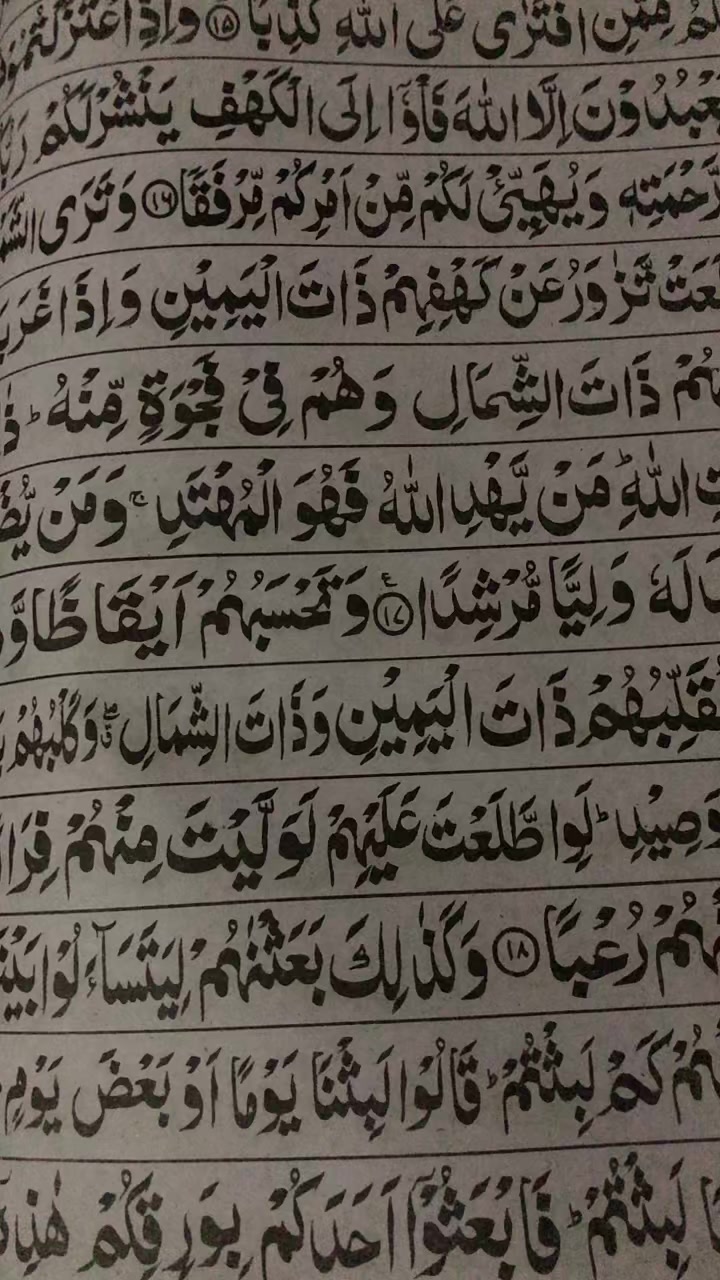 مِمَّنِ افْتَرٰى عَلَى اللهِ كَذِبًا ۝١٥ وَاِذِ اعْتَزَلْتُمُوْ
عْبُدُوْنَ اِلَّا اللهَ فَاْوٗۤا اِلَى الْكَهْفِ يَنْشُرْ لَكُمْ رَبُّ
رَّحْمَتِهٖ وَيُهَيِّئْ لَكُمْ مِّنْ اَمْرِكُمْ مِّرْفَقًا ۝١٦ وَتَرَى الشَّمْ
عَتْ تَّزٰوَرُ عَنْ كَهْفِهِمْ ذَاتَ الْيَمِيْنِ وَاِذَا غَرَبَ
هُمْ ذَاتَ الشِّمَالِ وَهُمْ فِيْ فَجْوَةٍ مِّنْهُ ؕ ذٰ
تِ اللهِ ؕ مَنْ يَّهْدِ اللهُ فَهُوَ الْمُهْتَدِ ۚ وَمَنْ يُّضْ
لَهٗ وَلِيًّا مُّرْشِدًا ۝١٧ ع وَتَحْسَبُهُمْ اَيْقَاظًا وَّ
نُقَلِّبُهُمْ ذَاتَ الْيَمِيْنِ وَذَاتَ الشِّمَالِ ۖ وَكَلْبُهُمْ بَ
وَصِيْدِ ؕ لَوِ اطَّلَعْتَ عَلَيْهِمْ لَوَلَّيْتَ مِنْهُمْ فِرَارًا
هُمْ رُعْبًا ۝١٨ وَكَذٰلِكَ بَعَثْنٰهُمْ لِيَتَسَآءَلُوْا بَيْنَ
هُمْ كَمْ لَبِثْتُمْ ؕ قَالُوْا لَبِثْنَا يَوْمًا اَوْ بَعْضَ يَوْمٍ
ا لَبِثْتُمْ ؕ فَابْعَثُوْۤا اَحَدَكُمْ بِوَرِقِكُمْ هٰذِهٖۤ